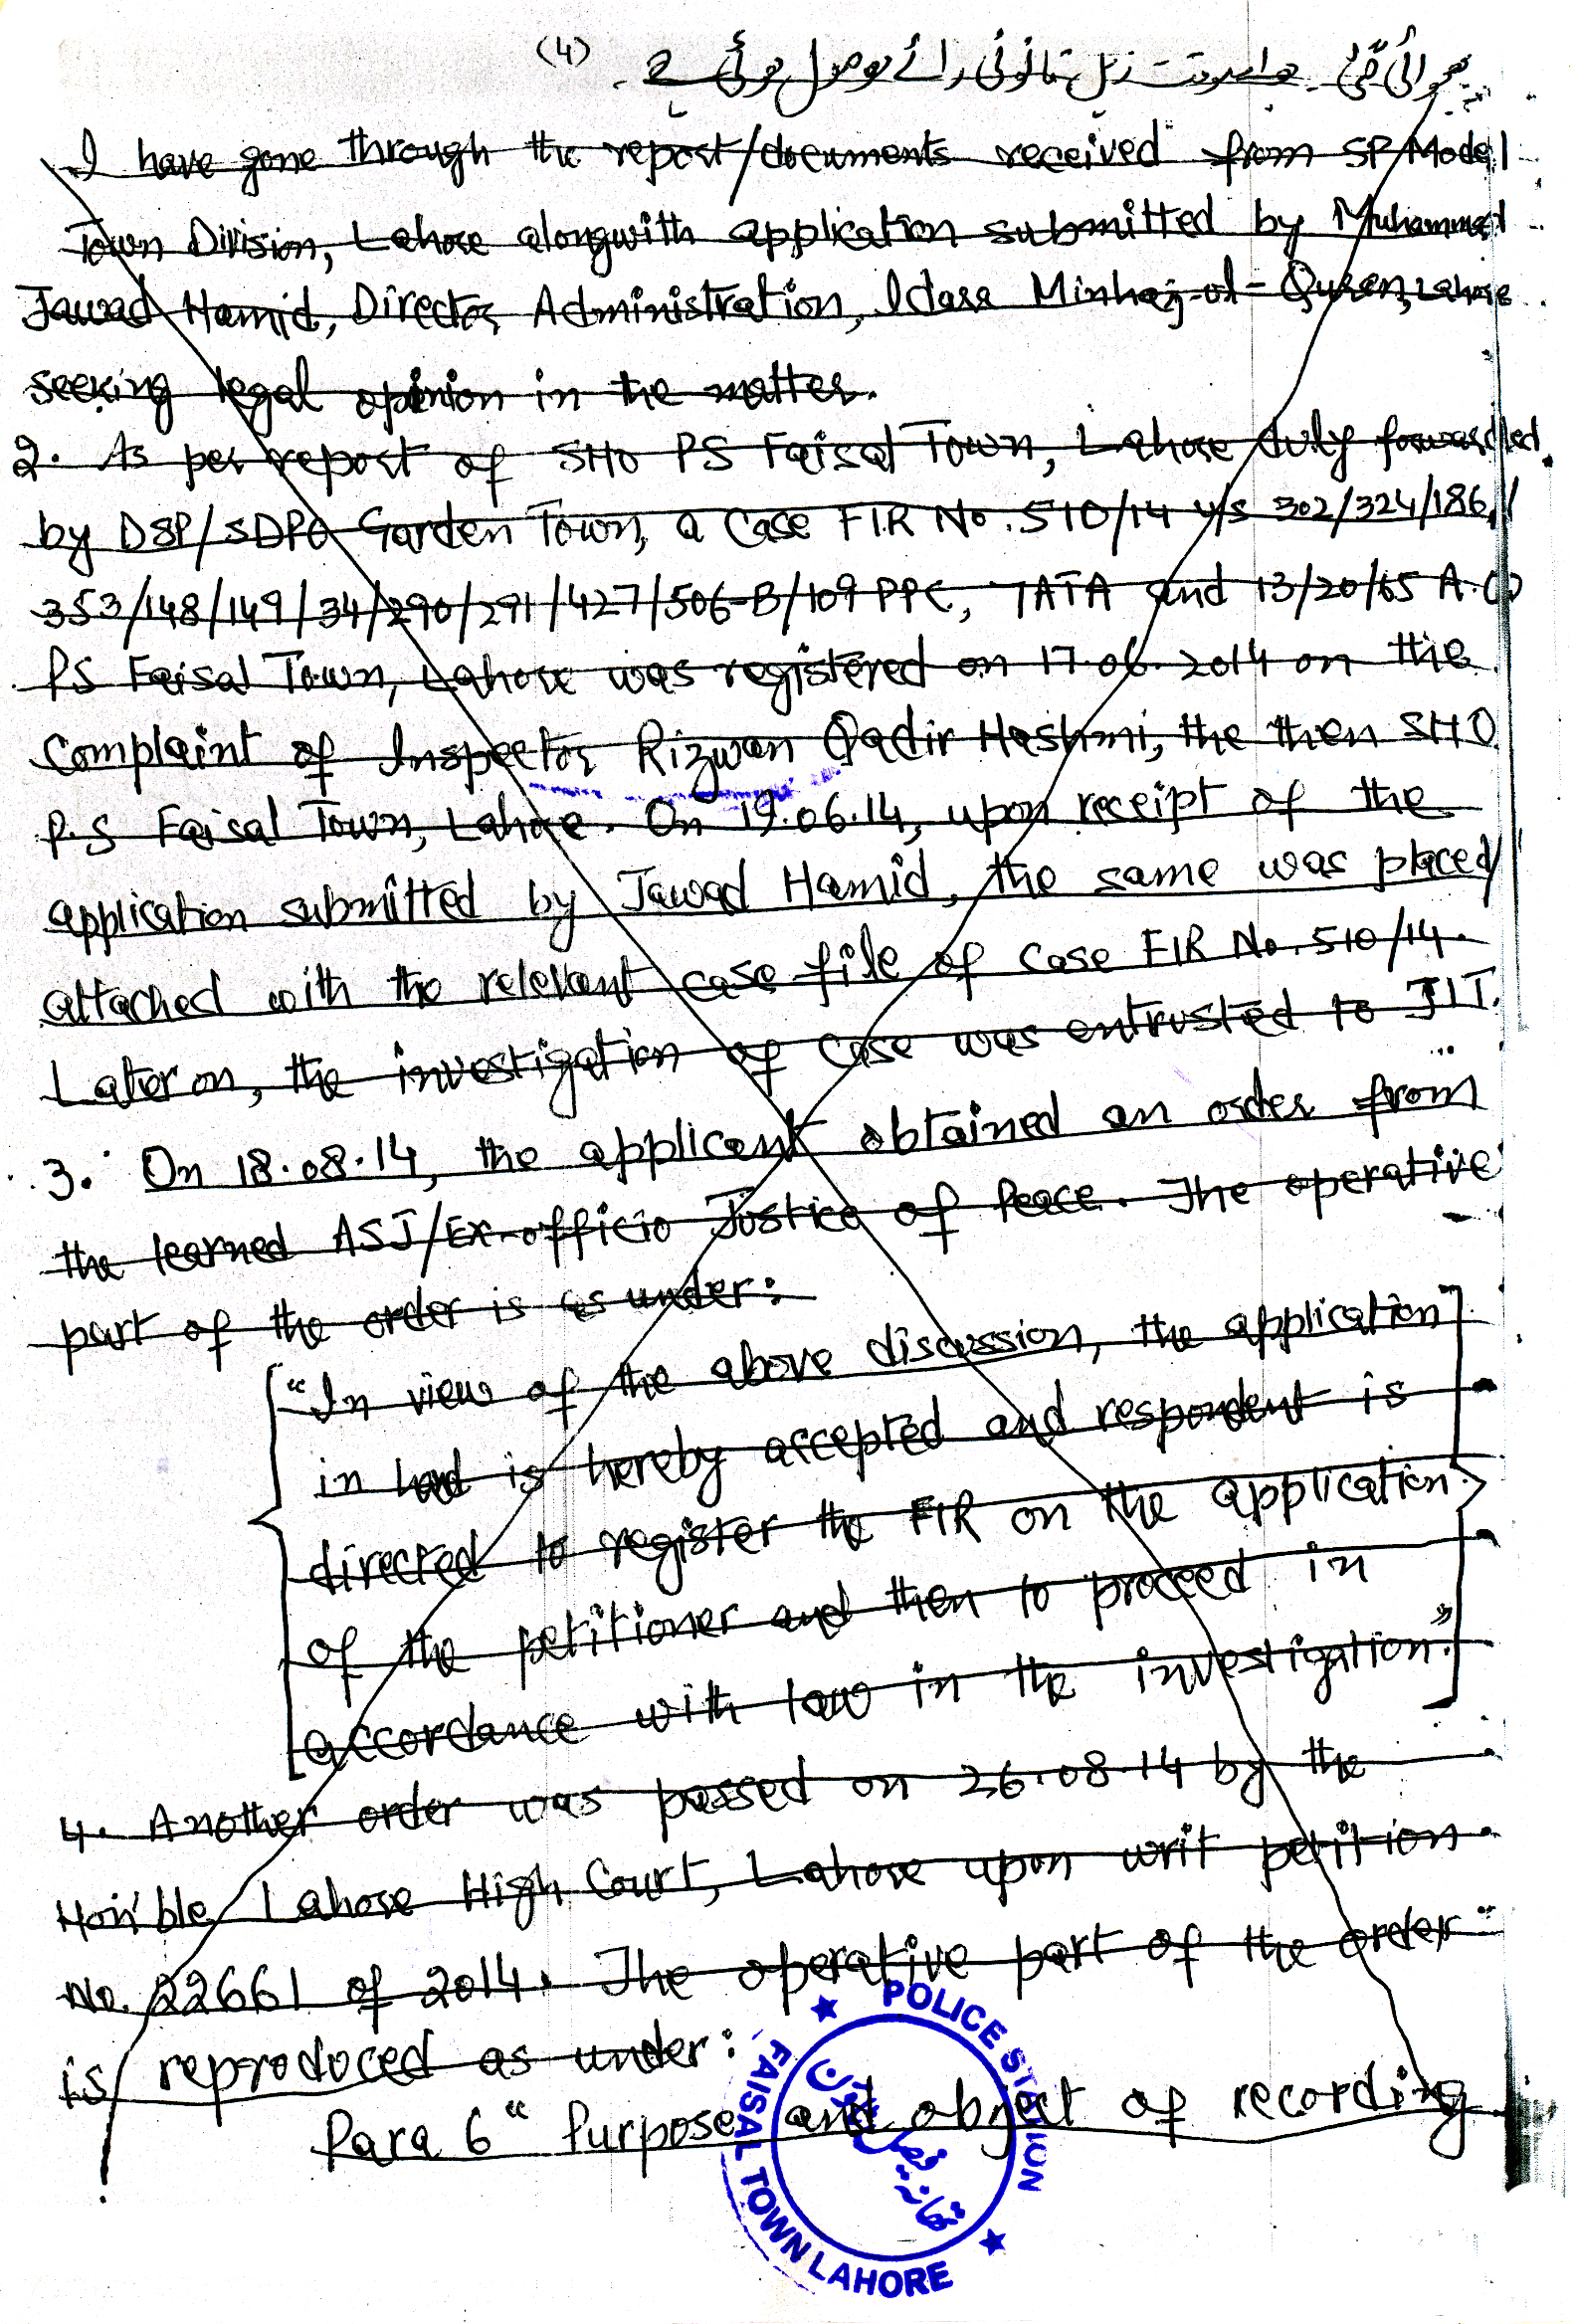 (4)
بھجوائی گئی۔ جو اسوقت ذیل قانونی رائے موصول ہوئی ہے۔
I have gone through the report/documents received from SP/Model
Town Division, Lahore alongwith application submitted by Muhammad
Jawad Hamid, Director Administration, Idara Minhaj-ul-Quran, Lahore
seeking legal opinion in the matter.
2. As per report of SHO PS Faisal Town, Lahore duly forwarded
by DSP/SDPO Garden Town, a case FIR No. 510/14 u/s 302/324/186/
353/148/149/34/290/291/427/506-B/109 PPC, 7ATA and 13/20/65 A.O
PS Faisal Town, Lahore was registered on 17.06.2014 on the
Complaint of Inspector Rizwan Qadir Hashmi, the then SHO
P.S Faisal Town, Lahore. On 19.06.14, upon receipt of the
application submitted by Jawad Hamid, the same was placed/
attached with the relevant case file of case FIR No. 510/14.
Later on, the investigation of case was entrusted to JIT.
3. On 18.08.14, the applicant obtained an order from
the learned ASJ/Ex-officio Justice of Peace. The operative
part of the order is as under:
"In view of the above discussion, the application
in hand is hereby accepted and respondent is
directed to register the FIR on the application
of the petitioner and then to proceed in
accordance with law in the investigation."
4. Another order was passed on 26.08.14 by the
Hon'ble Lahore High Court, Lahore upon writ petition
No. 22661 of 2014. The operative part of the order
is reproduced as under:
Para 6 " Purpose and object of recording
POLICE STATION
FAISAL TOWN LAHORE
تھانہ فیصل ٹاؤن